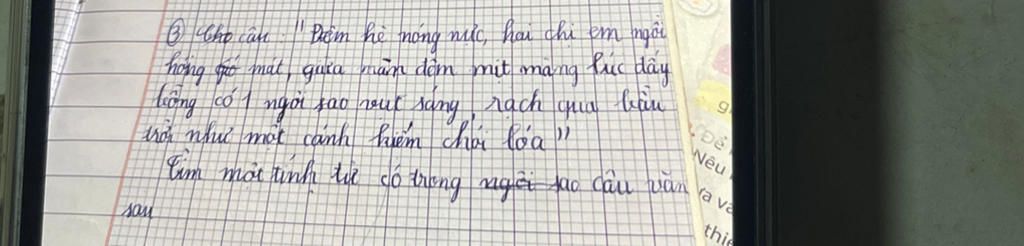 ③ Cho câu: "Đêm hè nóng nức, hai chị em ngồi
hóng gió mát, giữa màn đêm mịt màng lúc đấy
bỗng có 1 ngôi sao vụt sáng, rạch qua bầu
trời như một cánh kiếm chói lóa"
Tìm mỗi tính từ có trong ngôi sao câu văn
sau
g
Đề
Nêu
ra và
thiê